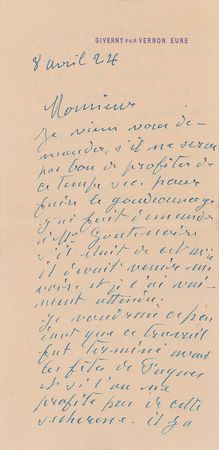 GIVERNY PAR VERNON EURE
8 avril 24
Monsieur
Je viens vous de-
mander s'il ne serait
pas bon de profiter de
ce temps sec pour
faire le goudronnage
j'ai fait demander
à Mr
s'il était de cet avis
il devait venir me
voir et je l'ai vai-
nement attendu.
Je voudrais cepen
dant que ce travail
fut terminé avant
les fêtes de Pâques
et si l'on ne
profite pas de cette
sécheresse. il y a